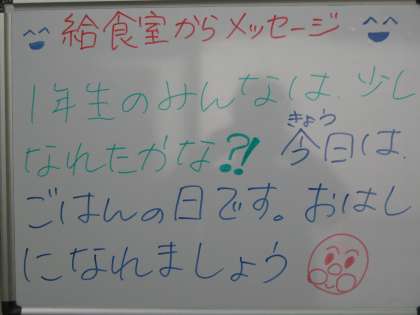 給食室からメッセージ
1年生のみんなは、少し
なれたかな?!
きょう
今日は、
ごはんの日です。おはし
になれましょう